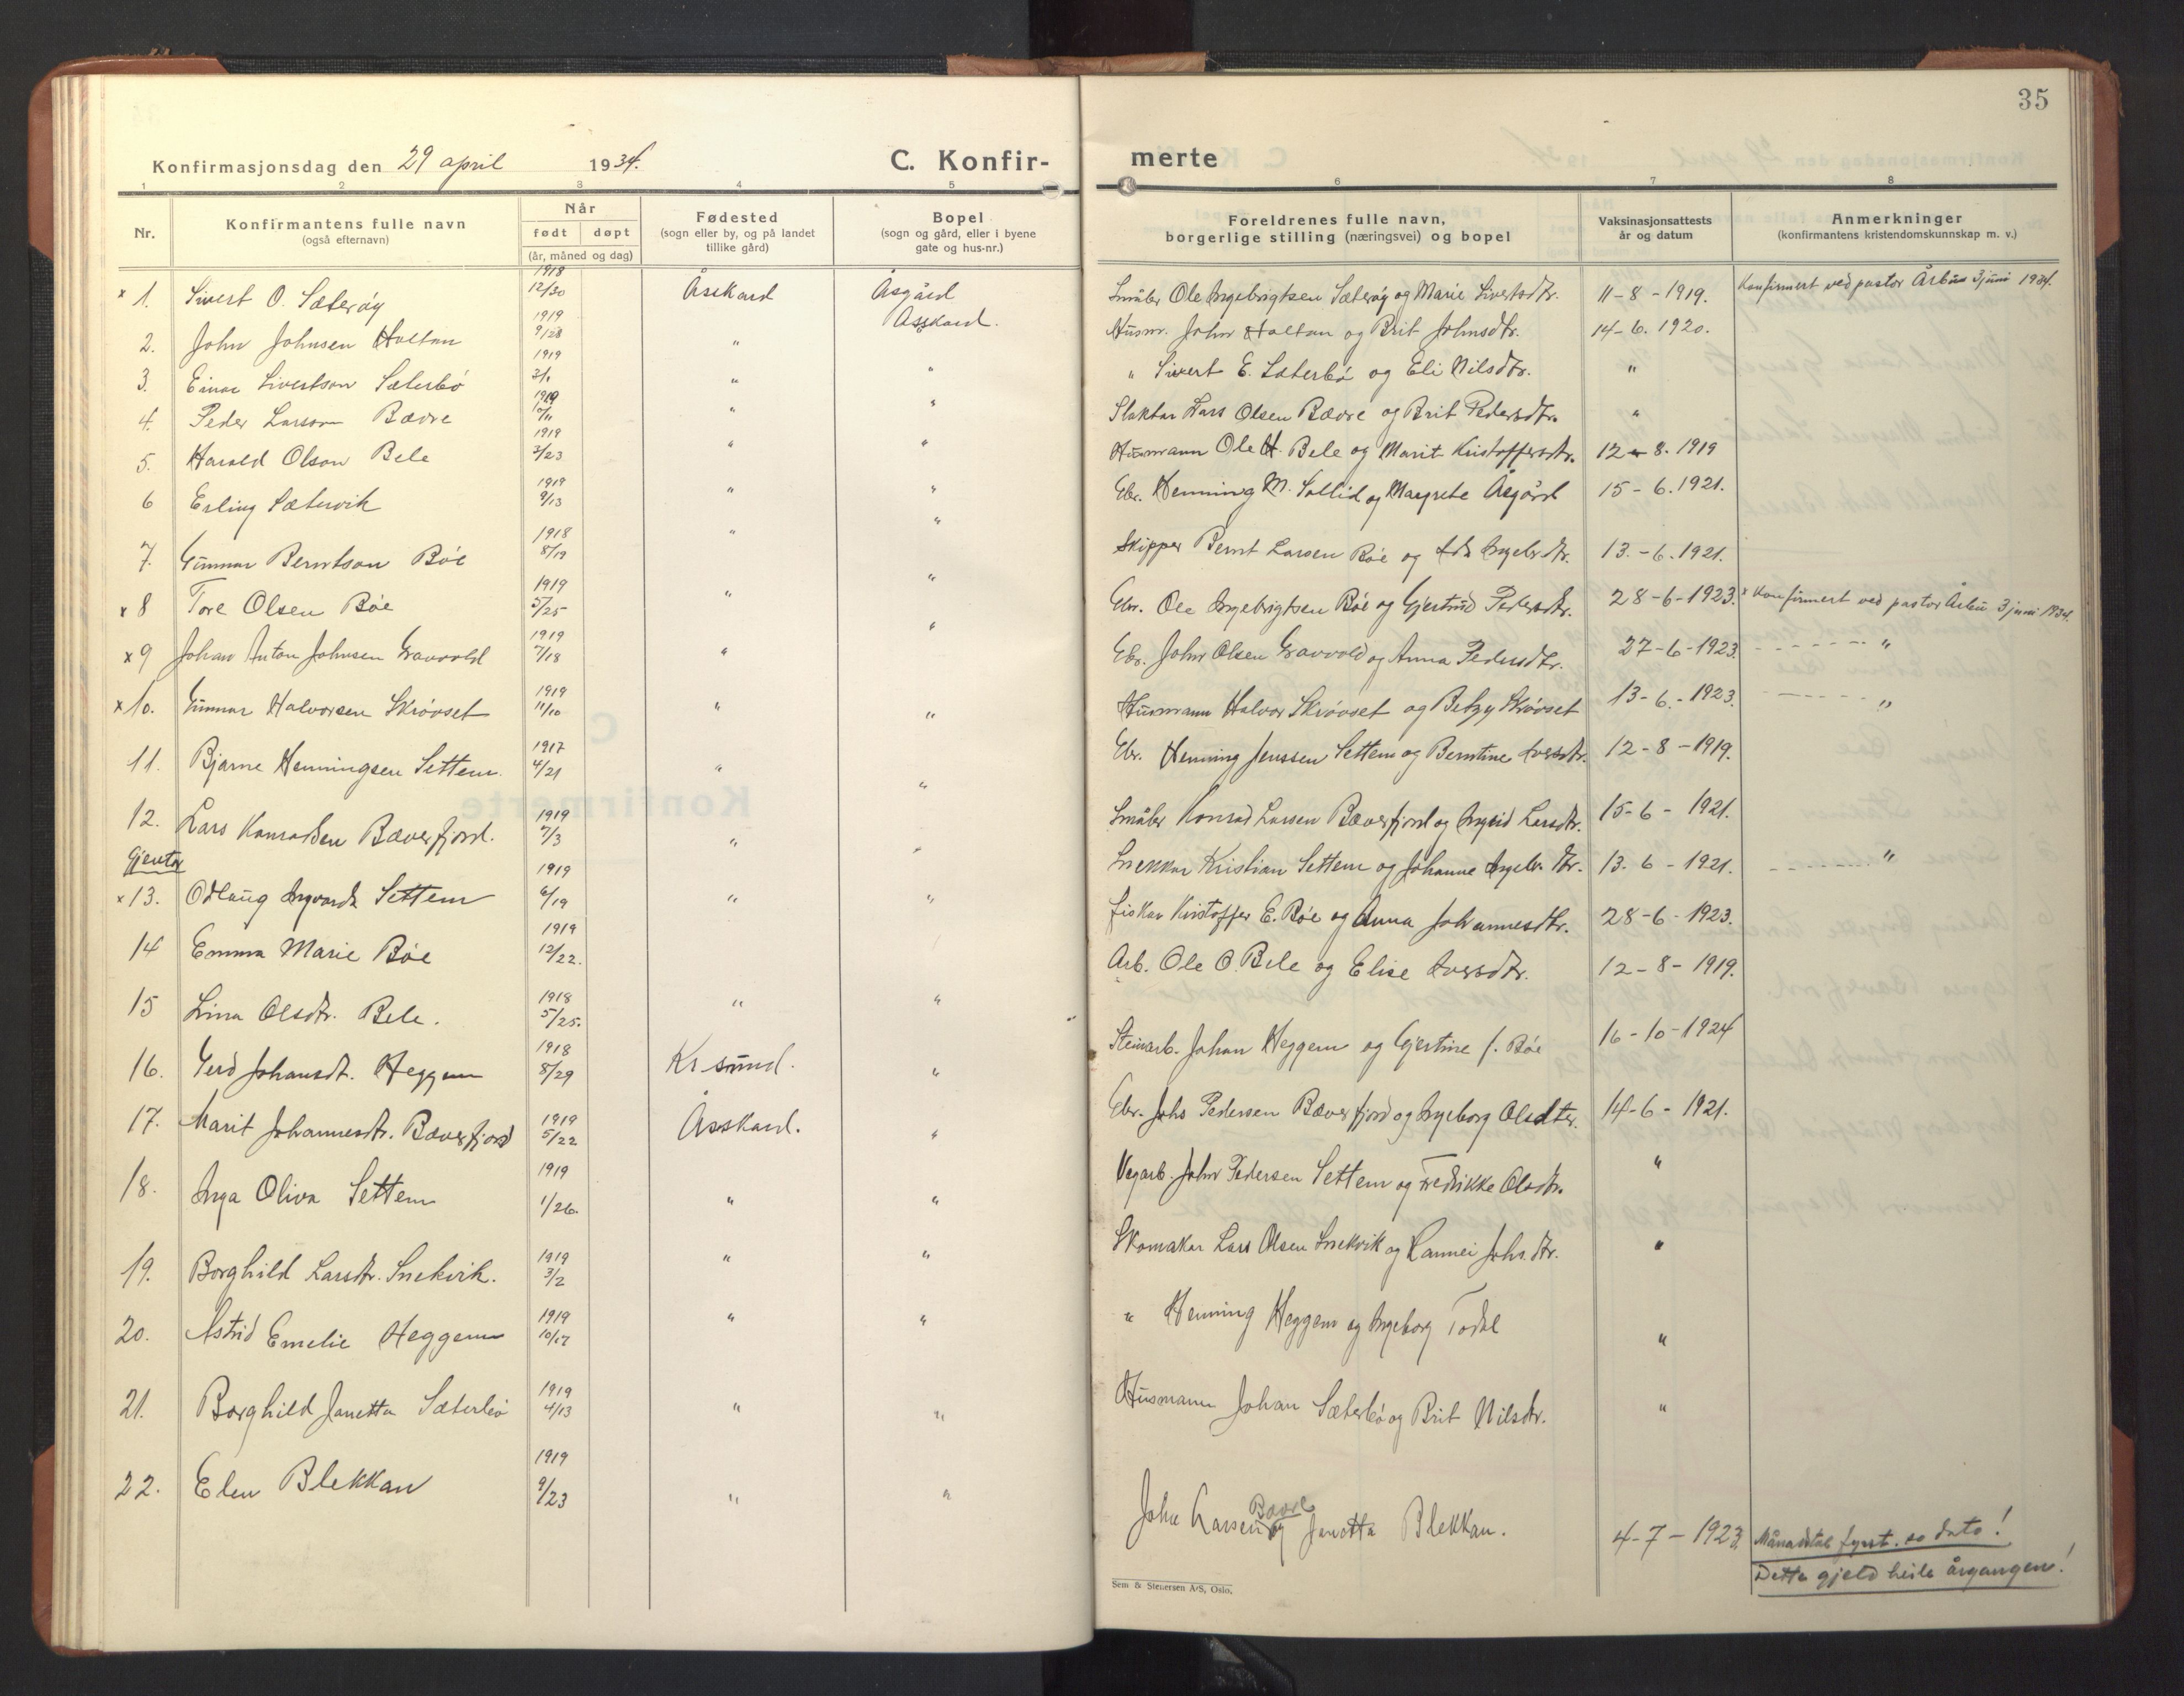 35
Konfirmasjonsdag den 29 april 1934. C. Konfir-
merte
1 2 3 4 5 6 7 8
Nr. Konfirmantens fulle navn (også efternavn) Når født døpt (år, måned og dag) Fødested (sogn eller by, og på landet tillike gård) Bopel (sogn og gård, eller i byene gate og hus-nr.) Foreldrenes fulle navn, borgerlige stilling (næringsvei) og bopel Vaksinasjonsattests år og datum Anmerkninger (konfirmantens kristendomskunnskap m. v.)
x 1. Sivert O. Sæterøy 1918 12/30 Åsskard Åsgård Asskard. Småbr Ole Ingebrigtsen Sæterøy og Marie Sivertsdtr. 11-8-1919. Konfirmert ved pastor Årbu 3 juni 1934.
2. John Johnsen Holtan 1919 9/28 " Husm. John Holtan og Brit Johnsdtr. 14-6. 1920.
3. Einar Sivertson Sæterbö 1919 " " " Sivert E. Sæterbö og Eli Nilsdtr. "
4. Peder Larson Bævre 1919 " " Slaktar Lars Olsen Bævre og Brit Pedersdtr. "
5. Harald Olson Bele 1919 2/23 " " Husmann Ole H. Bele og Marit Kristoffersdtr. 12-8. 1919
6 Erling Sætervik 1919 9/13 " " Gbr. Henning M. Sollid og Margrete Åsgård 15-6. 1921.
7. Gunnar Berntson Böe 1918 8/19 " " Skipper Bernt Larsen Böe og Ingebr.dtr. 13.-6. 1921.
x 8 Tore Olsen Böe 1919 5/25 " " Gbr. Ole Ingebrigtsen Böe og Gjertrud Pedersdtr. 28-6-1923. x Konfirmert ved pastor Årbu 3 juni 1934.
x 9 Johan Anton Johnsen Gravvold 1919 7/18 " " Gbr. John Olsen Gravvold og Anna Pedersdtr. 27-6-1923. - - - - - - "
x 10. Gunnar Halvorsen Skrövset 1919 11/10 " " Husmann Halvor Skrövset og Betzy Skrövset 13-6.-1923. - - - - - - "
11. Bjarne Henningsen Settem. 1917 4/21 " " Gbr. Henning Jenssen Settem og Berntine Iversdtr. 12-8-1919.
12. Lars Konradsen Bæverfjord. 1919 7/3 " " Småbr Konrad Larsen Bæverfjord og Ingrid Larsdtr. 15-6-1921.
Gjentor
x 13. Odlaug Ingvarda Settem 1919 6/19 " " Snekkar Kristian Settem og Johanne Ingebr. dtr. 13. 6-1921. - - - - - - "
14 Emma Marie Böe 1919 12/22. Fiskar Kristoffer E. Böe og Anna Johannesdtr. 28-6-1923.
15 Lina Olsdtr. Bele. 1918 5/25. " " Arb. Ole O. Bele og Elise Iversdtr. 12-8-1919.
16. Gerd Johansdt. Heggem 1918 8/29 Kr.sund. " Steinarb. Johan Heggem og Gjertine f. Böe 16-10-1924
17. Marit Johannesdtr. Bæverfjord 1919 5/22 Åsskard. " Gbr. Johs Pedersen Bæverfjord og Ingeborg Olsdter. 14-6-1921.
18. Inga Oliva Settem 1919 1/26. " " Vegarb. John Pedersen Settem og Fredrikke Olsdtr. "
19. Borghild Larsdtr. Snekvik. 1919 3/2 " " Skomakar Lars Olsen Snekvik og Rannei Johs.dtr. "
20. Astrid Emelie Heggem 1919 10/17 " " " Henning Heggem og Ingeborg Todal "
21. Borghild Janetta Sæterbö 1919 4/13 " " Husmann Johan Sæterbö og Brit Nilsdtr. "
22. Elen Blekkan 1919 9/23 " " John Larsen Bævre og Janetta Blekkan. 4-7-1923. Månadstal fyrst. so dato!
Dette gjeld heile årgangen!
Sem & Stenersen A/S, Oslo.